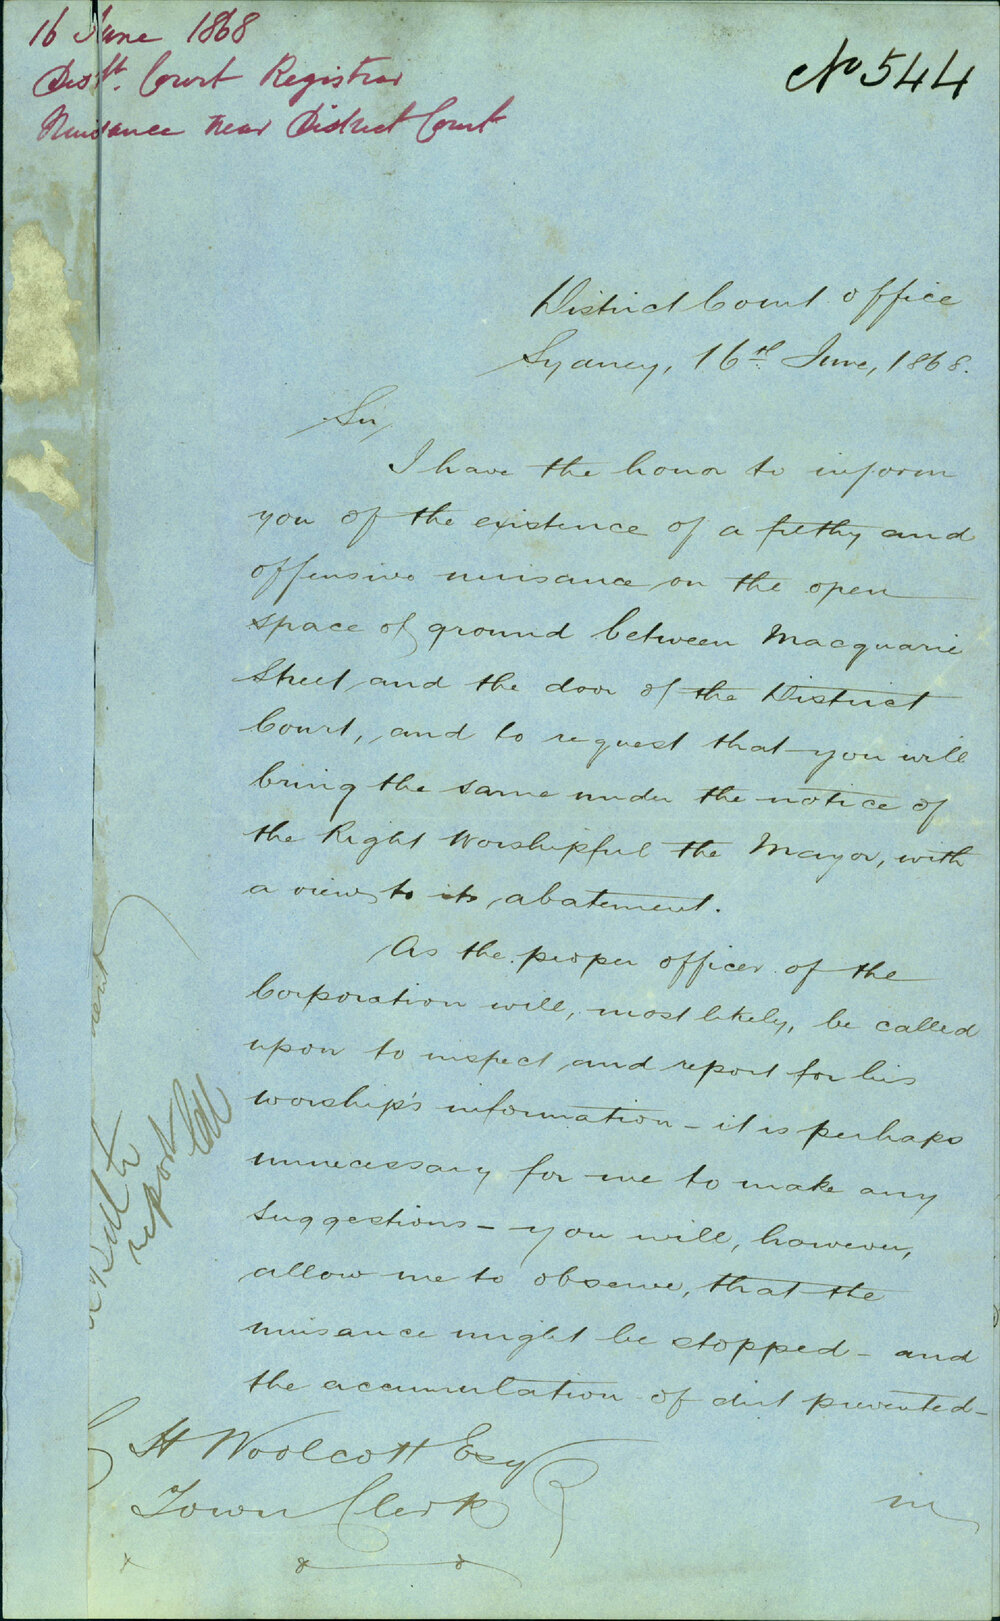 16 June 1868
Distt. Court Registrar
Nuisance near District Court
No 544
District Court Office
Sydney, 16th June, 1868.
Sir,
I have the honor to inform
you of the existence of a filthy and
offensive nuisance on the open
space of ground between Macquarie
Street and the door of the District
Court, and to request that you will
bring the same under the notice of
the Right Worshipful the Mayor, with
a view to its abatement.
As the proper officer of the
Corporation will, most likely, be called
upon to inspect and report for his
worship's information - it is perhaps
unnecessary for me to make any
suggestions - you will, however,
allow me to observe, that the
nuisance might be stopped - and
the accumulation of dirt prevented -
H Woolcott Esq
Town Clerk
in
report